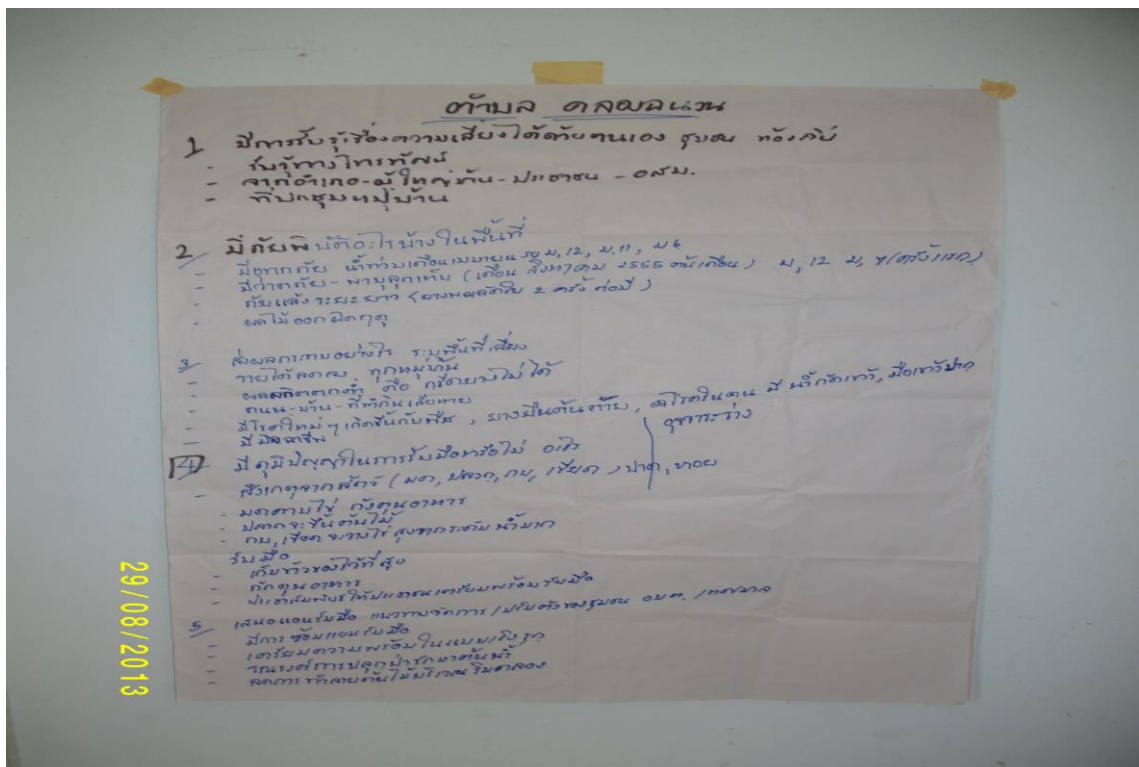 ตำบล คลองฉนวน
1 มีการรับรู้เรื่องความเสี่ยงได้ด้วยตนเอง ชุมชน ท้องถิ่น
- รับรู้ทางโทรทัศน์
- จากอำเภอ-ผู้ใหญ่บ้าน-ประชาชน - อสม.
- ที่ประชุมหมู่บ้าน
2 มีภัยพิบัติอะไรบ้างในพื้นที่
- มีอุทกภัย น้ำท่วมเดือนเมษายน ม, 12, ม. 11, ม 6
- มีวาตภัย - พายุลูกเห็บ (เดือน สิงหาคม 2555 ต้นเดือน) ม, 12 ม, 7 (ครั้งแรก)
- ภัยแล้ง ระยะยาว (ยางพลัดใบ 2 ครั้ง ต่อปี)
- ผลไม้ออกผิดฤดู
3 ส่งผลกระทบอย่างไร ระบุพื้นที่เสี่ยง
- รายได้ลดลง ทุกหมู่บ้าน
- ผลผลิตตกต่ำ คือ กรีดยางไม่ได้
- ถนน-บ้าน-ที่ทำกินเสียหาย
- มีโรคใหม่ๆ เกิดขึ้นกับพืช, ยางยืนต้นตาย, โรคในคน มี น้ำกัดเท้า, มือเท้าปาก
- มีมิจฉาชีพ อุจจาระร่วง
4 มีภูมิปัญญาในการรับมือหรือไม่ อะไร
- สังเกตุจากสัตว์ (มด, ปลวก, กบ, เขียด) ปาด, หอย
- มดคาบไข่ กักตุนอาหาร
- ปลวกจะขึ้นต้นไม้
- กบ, เขียด จะวางไข่ สูงจากระดับน้ำมาก
รับมือ
- เก็บข้าวของไว้ที่สูง
- กักตุนอาหาร
- ประชาสัมพันธ์ให้ประชาชนเตรียมพร้อมรับมือ
5 เสนอแผนรับมือ แนวทางจัดการ / ปรับตัวของชุมชน อบต. / เทศบาล
- มีการซ้อมแผนรับมือ
- เตรียมความพร้อมในแบบเชิงรุก
- รณรงค์การปลูกป่ารักษาต้นน้ำ
- ลดการทำลายต้นไม้บริเวณริมคลอง
29/08/2013